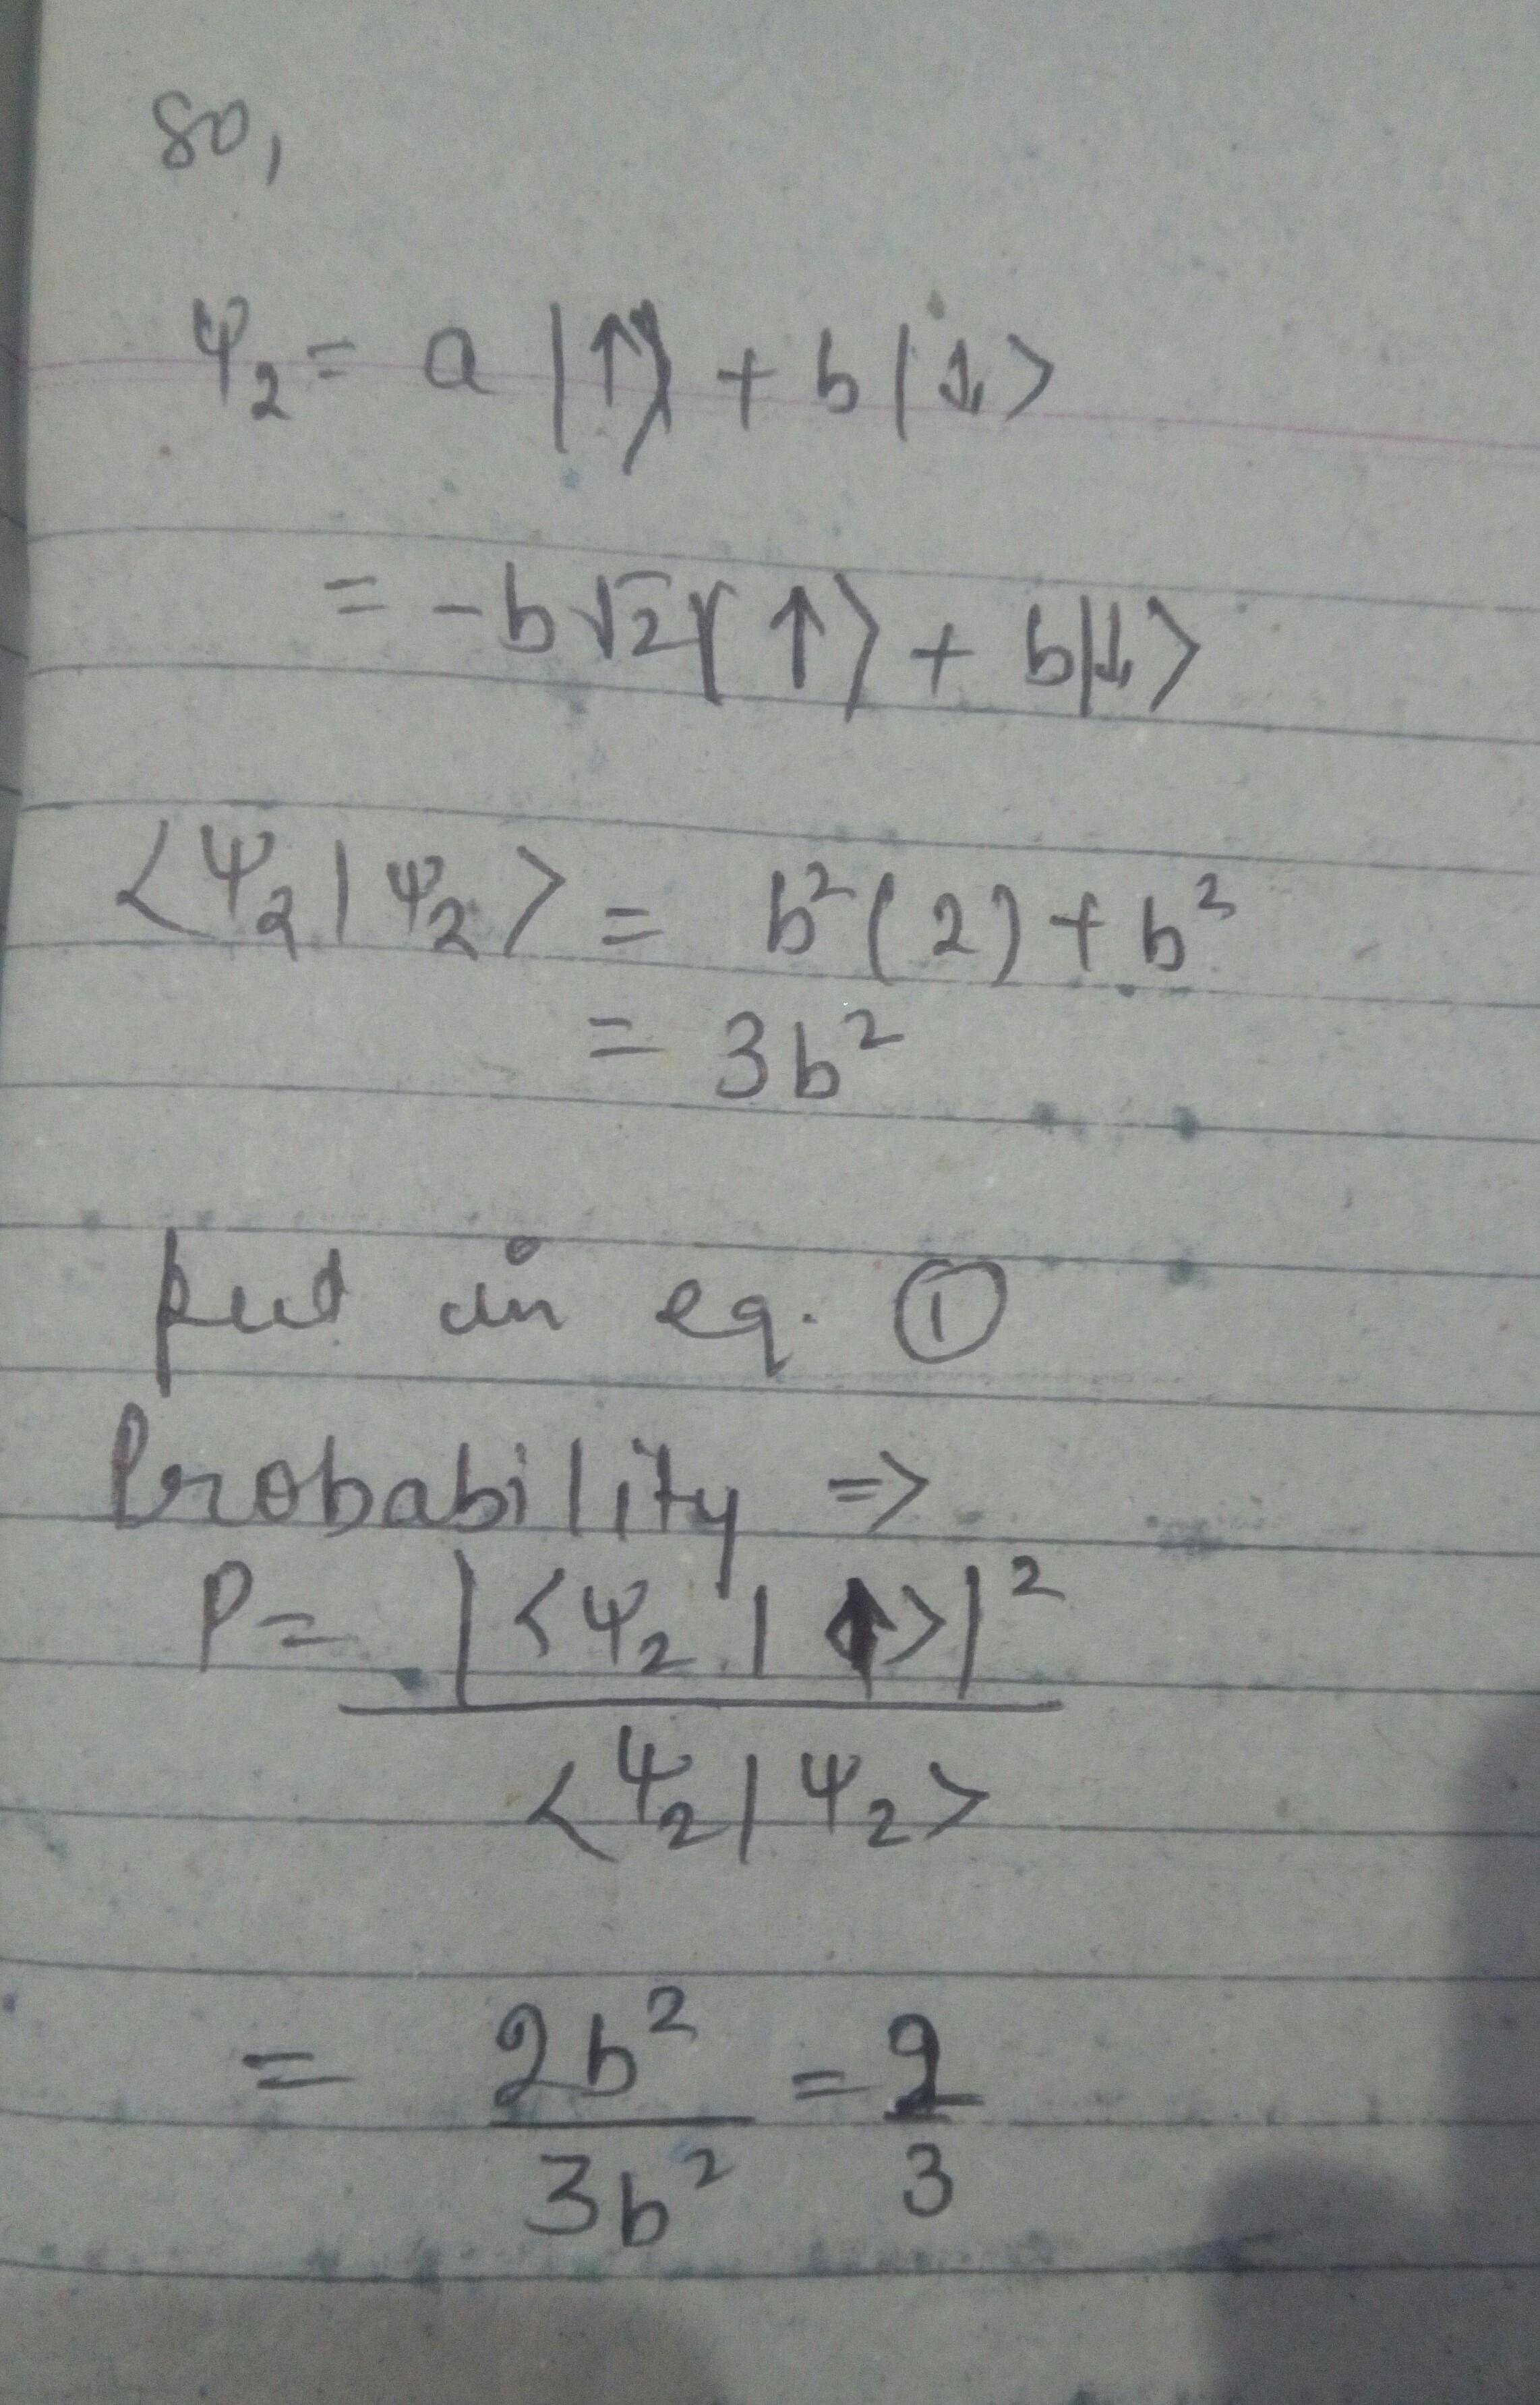 so,
ψ₂ = a |↑⟩ + b |↓⟩
= -b√2 |↑⟩ + b|↓⟩
⟨ψ₂|ψ₂⟩ = b²(2) + b²
= 3b²
put in eq. ①
Probability =>
P = |⟨ψ₂|↑⟩|²
⟨ψ₂|ψ₂⟩
= 2b²/3b² = 2/3